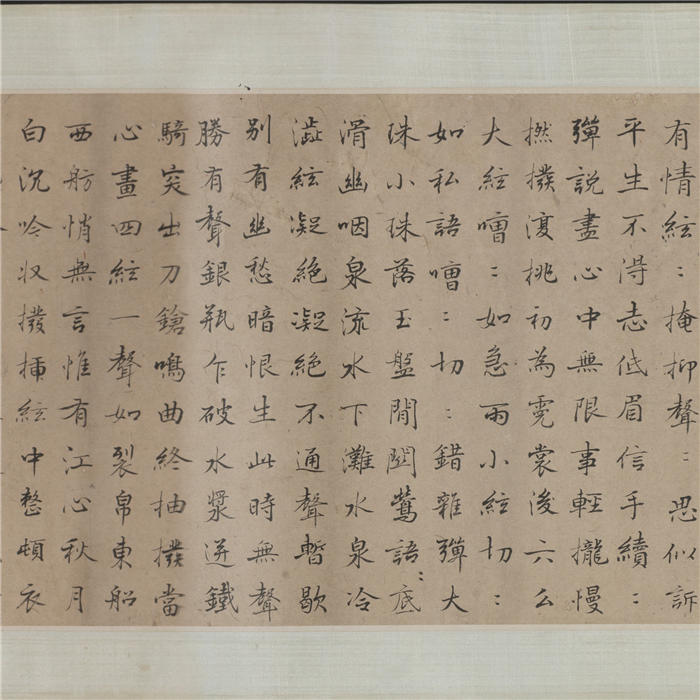 有情絃〻掩抑聲〻思似訴
平生不得志低眉信手續〻
彈說盡心中無限事輕攏慢
撚撥復挑初為霓裳後六么
大絃嘈〻如急雨小絃切〻
如私語嘈〻切〻錯雜彈大
珠小珠落玉盤間關鶯語底
滑幽咽泉流水下灘水泉冷
澁絃凝絕凝絕不通聲暫歇
別有幽愁暗恨生此時無聲
勝有聲銀瓶乍破水漿迸鐵
騎突出刀鎗鳴曲終抽撥當
心畫四絃一聲如裂帛東船
西舫悄無言惟有江心秋月
白沉吟收撥插絃中整頓衣